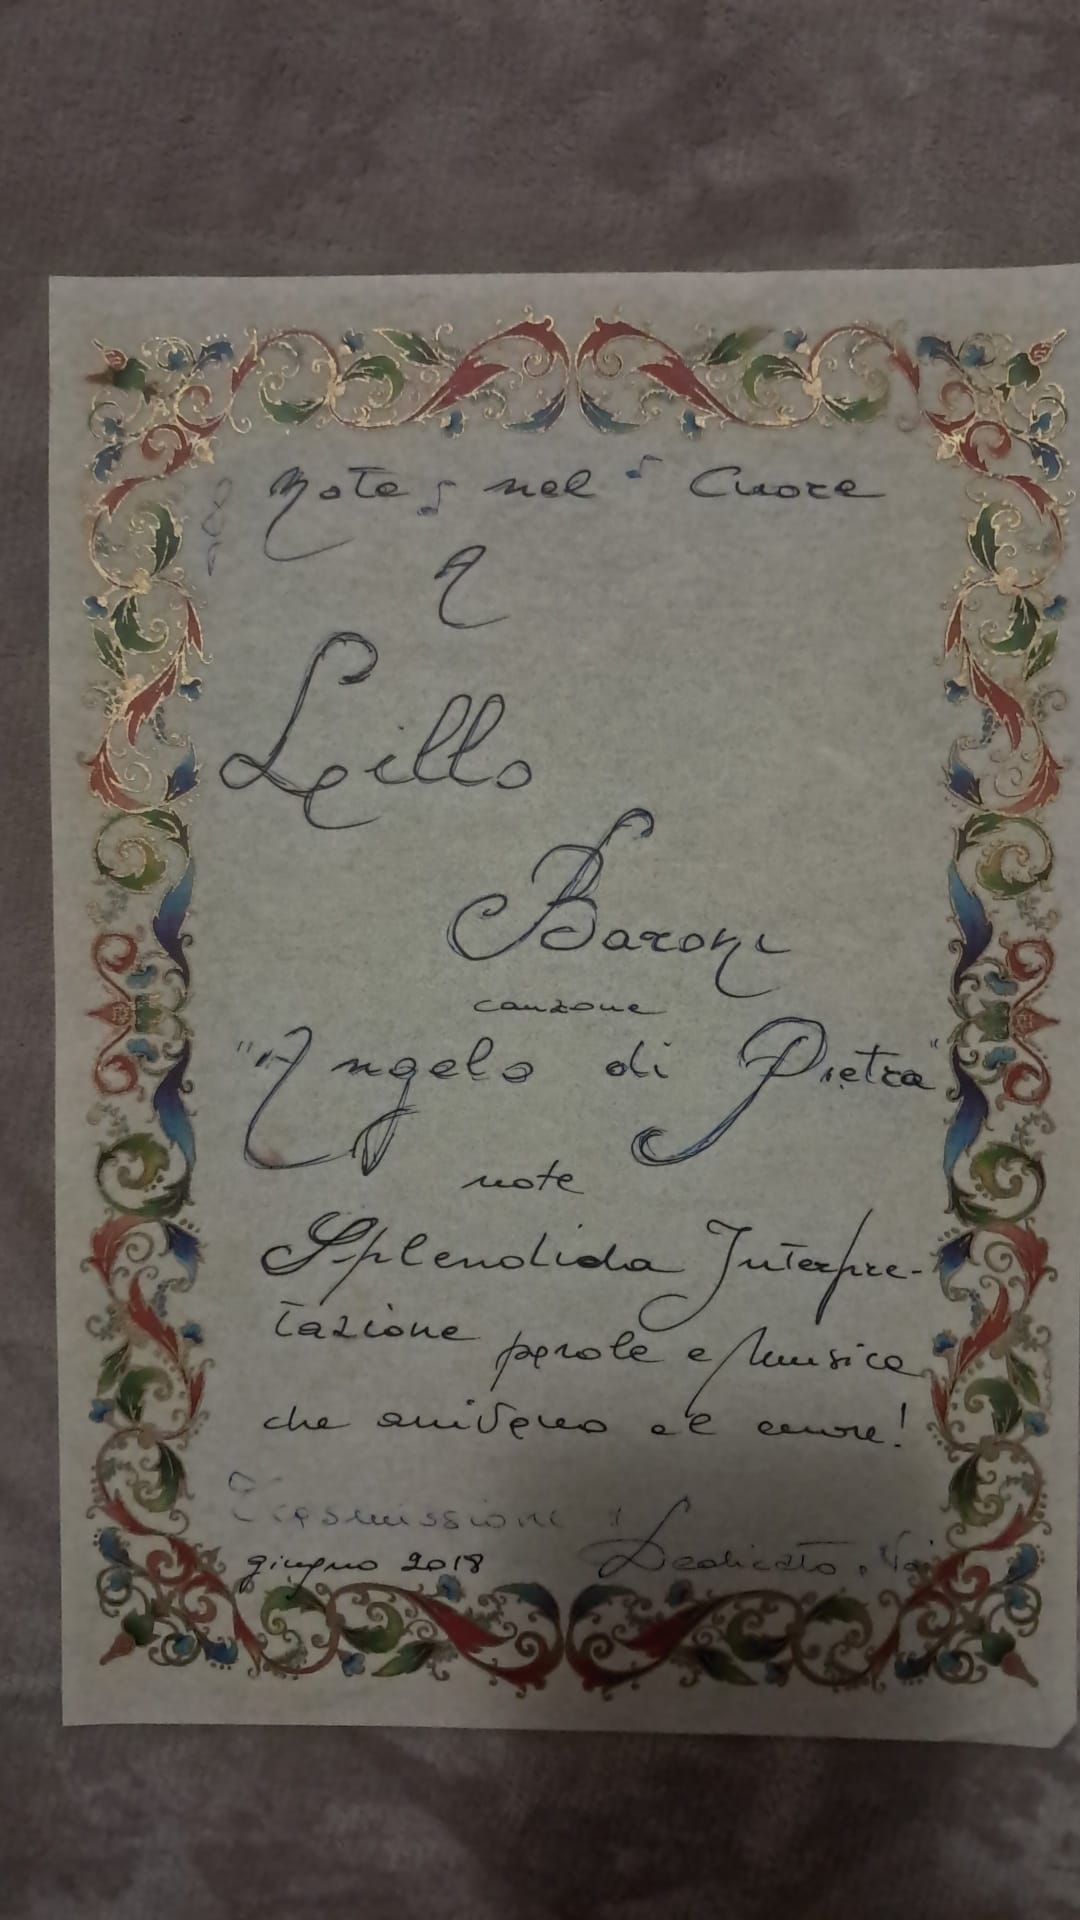 Note nel Cuore
A
Lillo
Baroni
canzone
"Angelo di Pietra"
note
Splendida Interpre-
tazione parole e Musica
che arrivano al cuore!
Trasmissione
giugno 2018 Dedicato a Voi